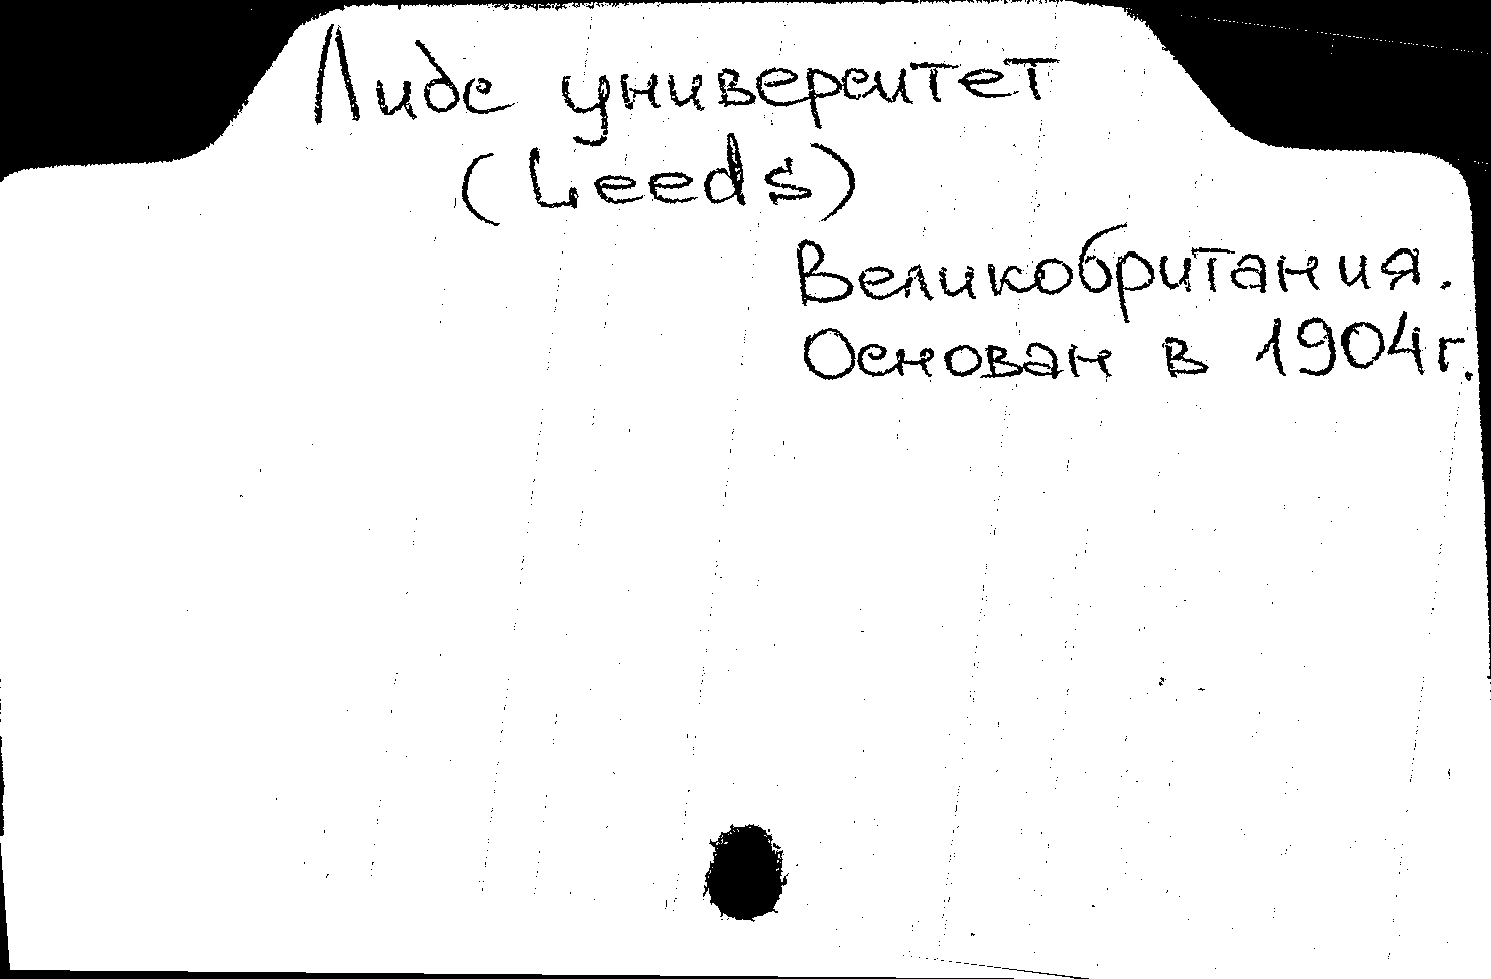 Лидс университет
(Leeds)
Великобритания.
Основан в 1904г.